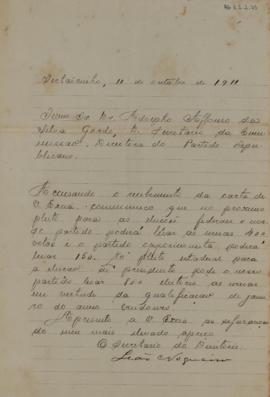 11 de outubro de 1911
Exmo Sr. Dr. Adolpho Affonso da
Silva Gordo, M. Secretario da Com-
missão Directora do Partido Repu-
blicano.
Accusando o recebimento da carta de
V. Excia communico que no proximo
pleito para as eleições federaes o nos-
so partido poderá levar ás urnas 400
votos e o partido opposicionista poderá
levar 150. No pleito estadual para
a eleição de presidente pode o nosso
partido levar 800 eleitores ás urnas
em virtude da qualificação de janei-
ro do anno vindouro.
Apresento a V. Excia as
do meu mais elevado apreço
O Secretario do Directorio
João Nogueira